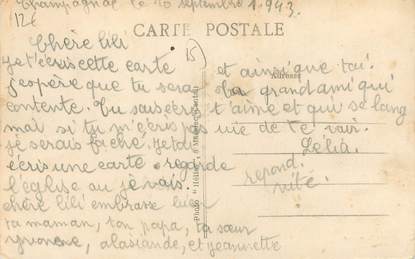 Champagnac le 10 septembre 1943.
12€
CARTE POSTALE
Chère lili
je t'ecris cette carte
j'espère que tu sera
contente. Tu sais écris
moi si tu m'écris pas
je serais faché. je t'
écris une carte. regarde
l'église au je vais.
chère lili embrasse bien
ta maman, ton papa, ta sœur
yvonne, et jeannette
15
et ainsi que toi.
Adresse
ta grand ami qui
t'aime et qui se lang
uie de te voir.
Lélia.
repond
vite.
Photo